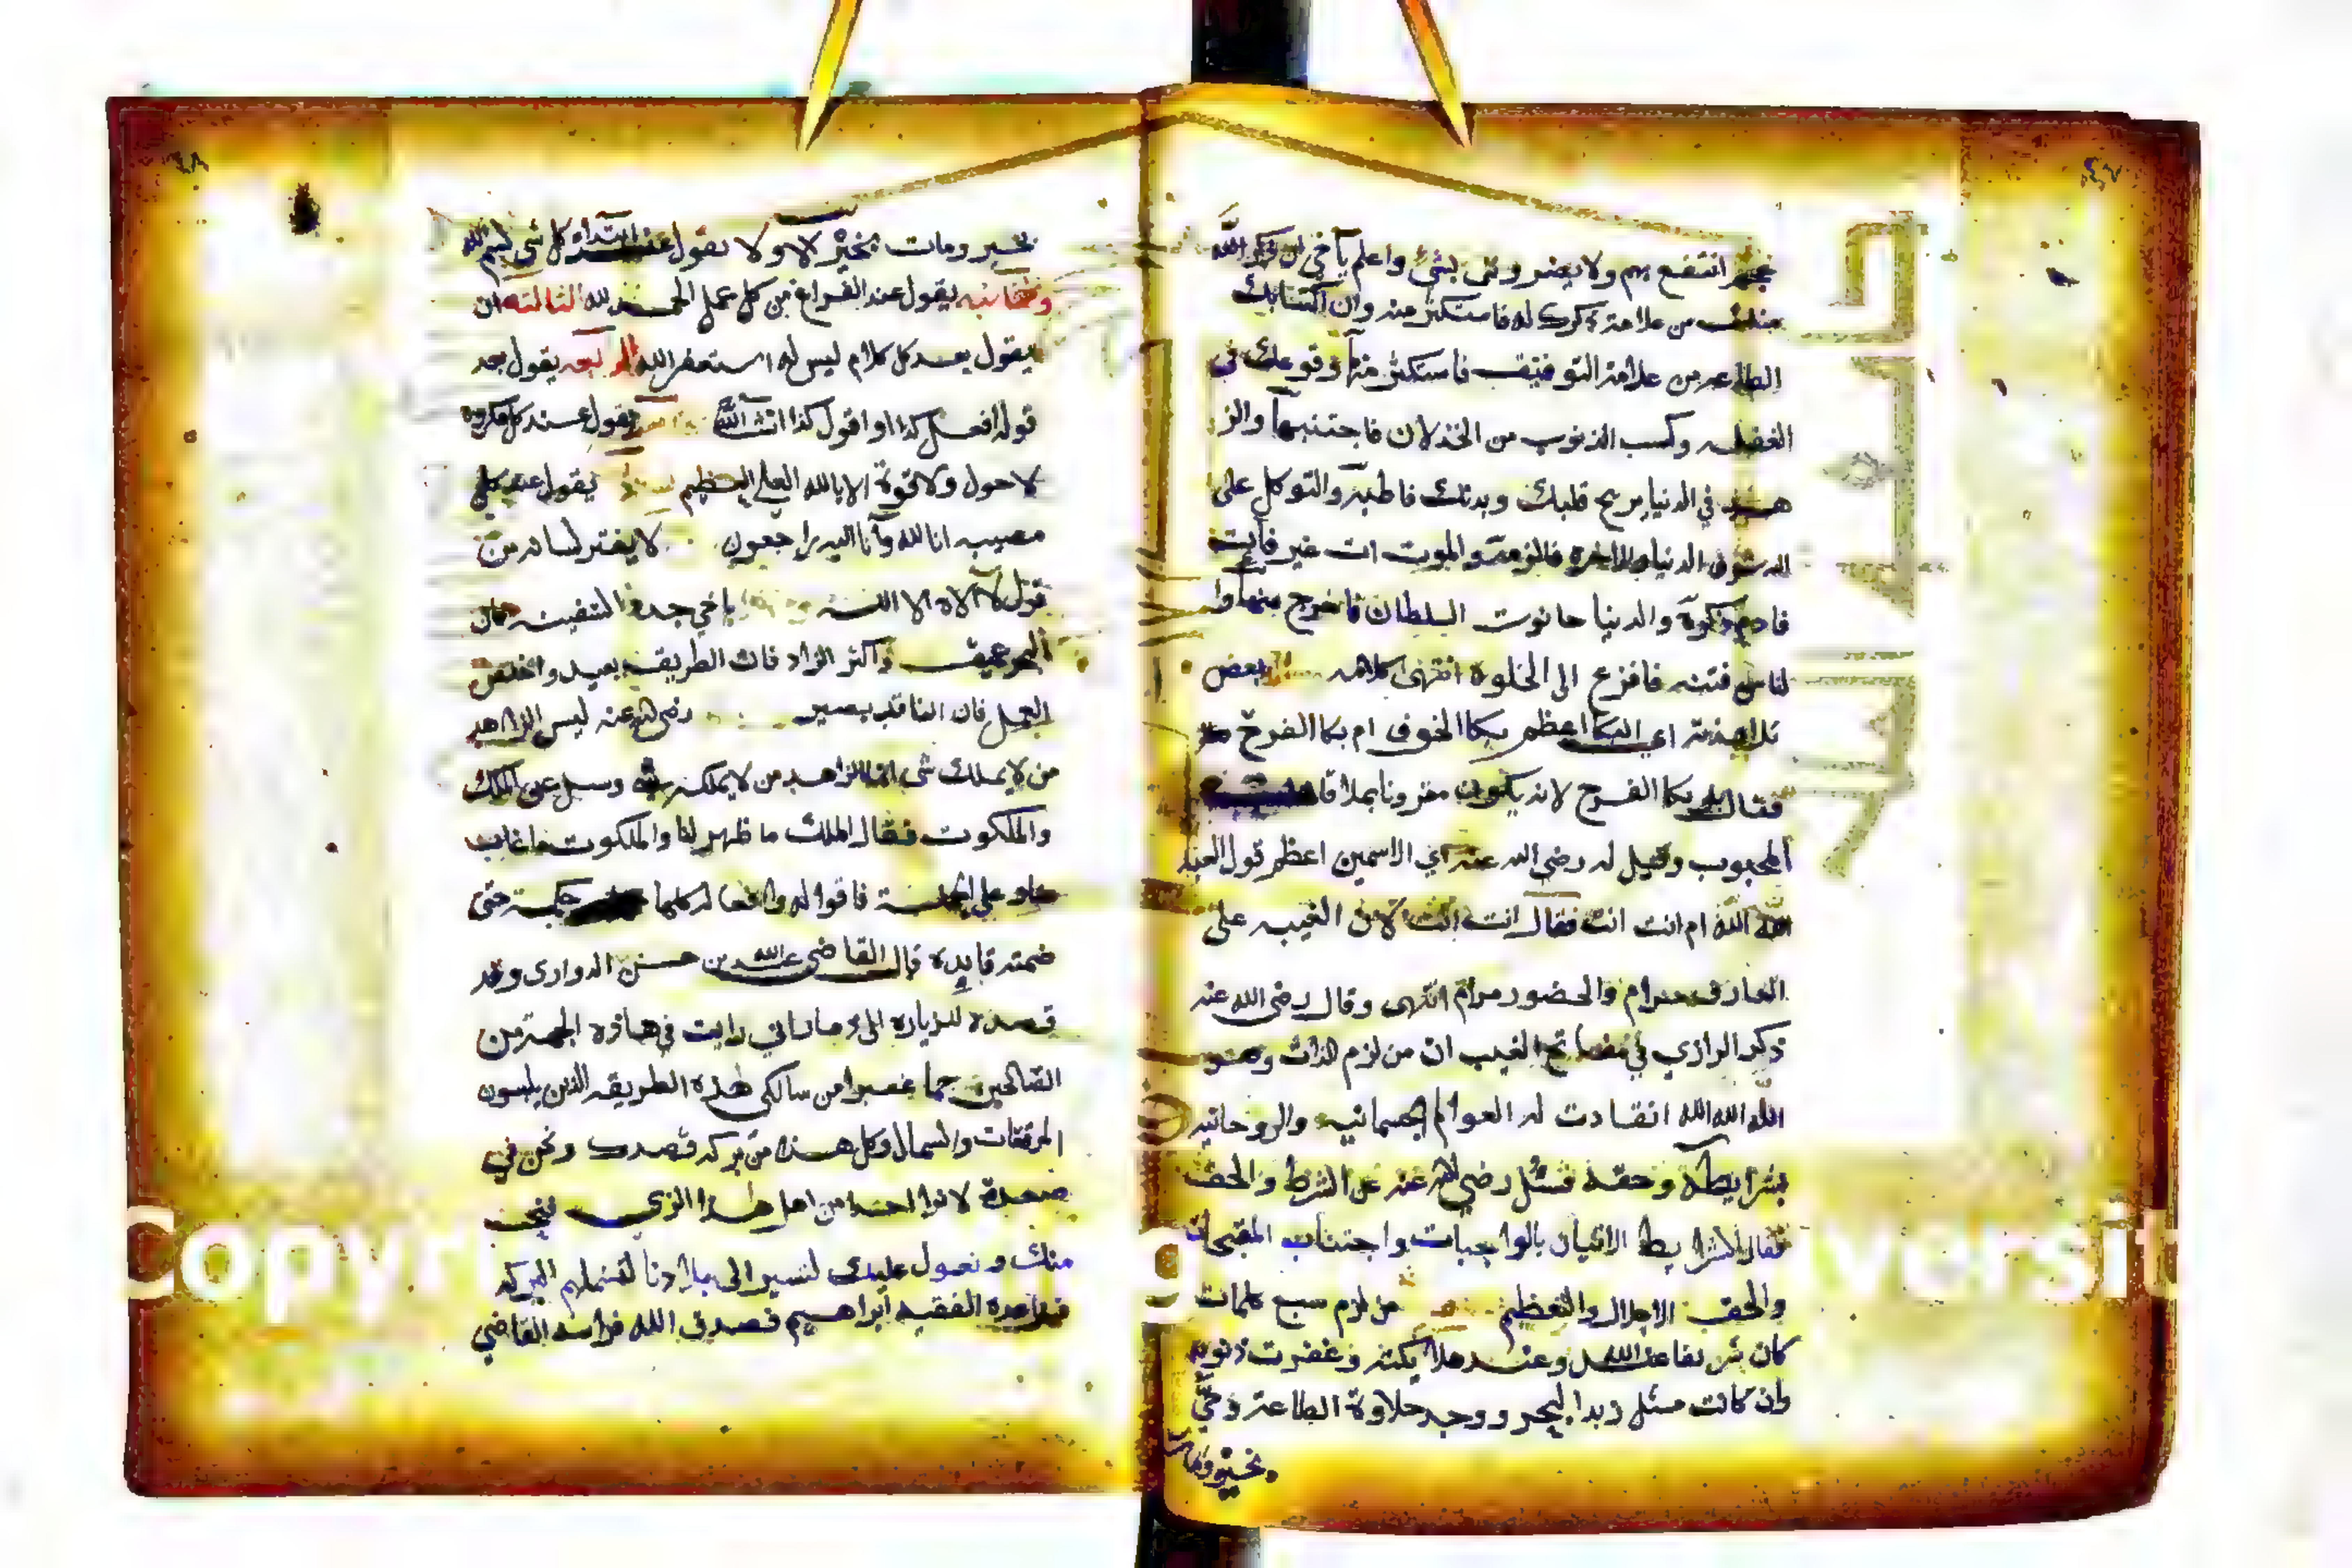 انتفع بهم ولا يضروني بشئ واعلم يا خي ان ذكر الله
من علامة ذكرك له فاستكثر منه وان اكتسابك
الطاعه من علامة التوفيق فاستكثر منها وقوعك في
الغفله وكسب الذنوب من الخذلان فاجتنبها والز
هد في الدنيا يريح قلبك وبدنك فاطلبه والتوكل على
الله الدنيا والاخره فالزمه والموت ات غير فايت
فادم ذكره والدنيا حانوت السلطان فاخرج منها وا
لناس فتنه فافزع الى الخلوة انتهى كلامه بعض
تلامذته اي البكا اعظم بكا الخوف ام بكا الفرح
فقال بكا الفرح لانه يكون مقرونا بملاقاة
المحبوب وقيل له رضي الله عنه اي الاسمين اعظم قول العبد
الله الله ام انت انت فقال انت انت لان الغيب على
العارف حرام والحضور مرام انتهى وقال رضي الله عنه
ذكر الرازي في مفاتح الغيب ان من لزم الذات وهو
الله الله الله انقادت له العوالم الجسمانيه والروحانيه
بشرايطه وحقه فسئل رضي الله عنه عن الشرط والحق
فقال الشرايط الاتيان بالواجبات واجتناب المقبحات
والحق الاجلال والتعظيم من لزم سبع كلمات
كان شريفا عند الله وعند ملائكته وغفرت ذنوبه
وان كانت مثل زبد البحر ووجد حلاوة الطاعة وحي
بخير ومات
بخير ومات بخير الاولا يقول عند ابتداء كل شي بسم الله
والثانيه يقول عند الفراغ من كل عمل الحمد لله الثالثه ان
يقول بعد كل كلام ليس له استغفر الله الرابعه يقول بعد
قوله افعل كذا او اقول كذا انشا الله يقول عند كل مكروه
لا حول ولا قوة الا بالله العلي العظيم يقول عند كل
مصيبه انا لله وانا اليه راجعون لا يفتر لسانه من
قول لا اله الا الله يا خي جدد السفينه فان
البحر عميق واكثر الزاد فان الطريق بعيد واخلص
العمل فان الناقد بصير رضي الله عنه ليس الزاهد
من لا يملك شي انما الزاهد من لا يملكه شي وسيل عن الملك
والملكوت فقال الملك ما ظهر لنا والملكوت ما غاب
على فاقواله وافعاله كلها حكمة حتى
ضمته فايده قال القاضي عبد الله بن حسن الدواري وقد
قصده للزياره رايت في هذه الجهة من
الصالحين جما غفيرا من سالكي هذه الطريقه الذين يلبسون
المرقعات والسمال وكل هذا من بركه قصدك ونحن في
صعدة لا نرا احدا من اهل هذا الزي فنحب
منك و نعول عليك لتسير الى بلادنا لتشملهم البركه
الفقيه ابراهيم فصدق الله فراسه القاضي